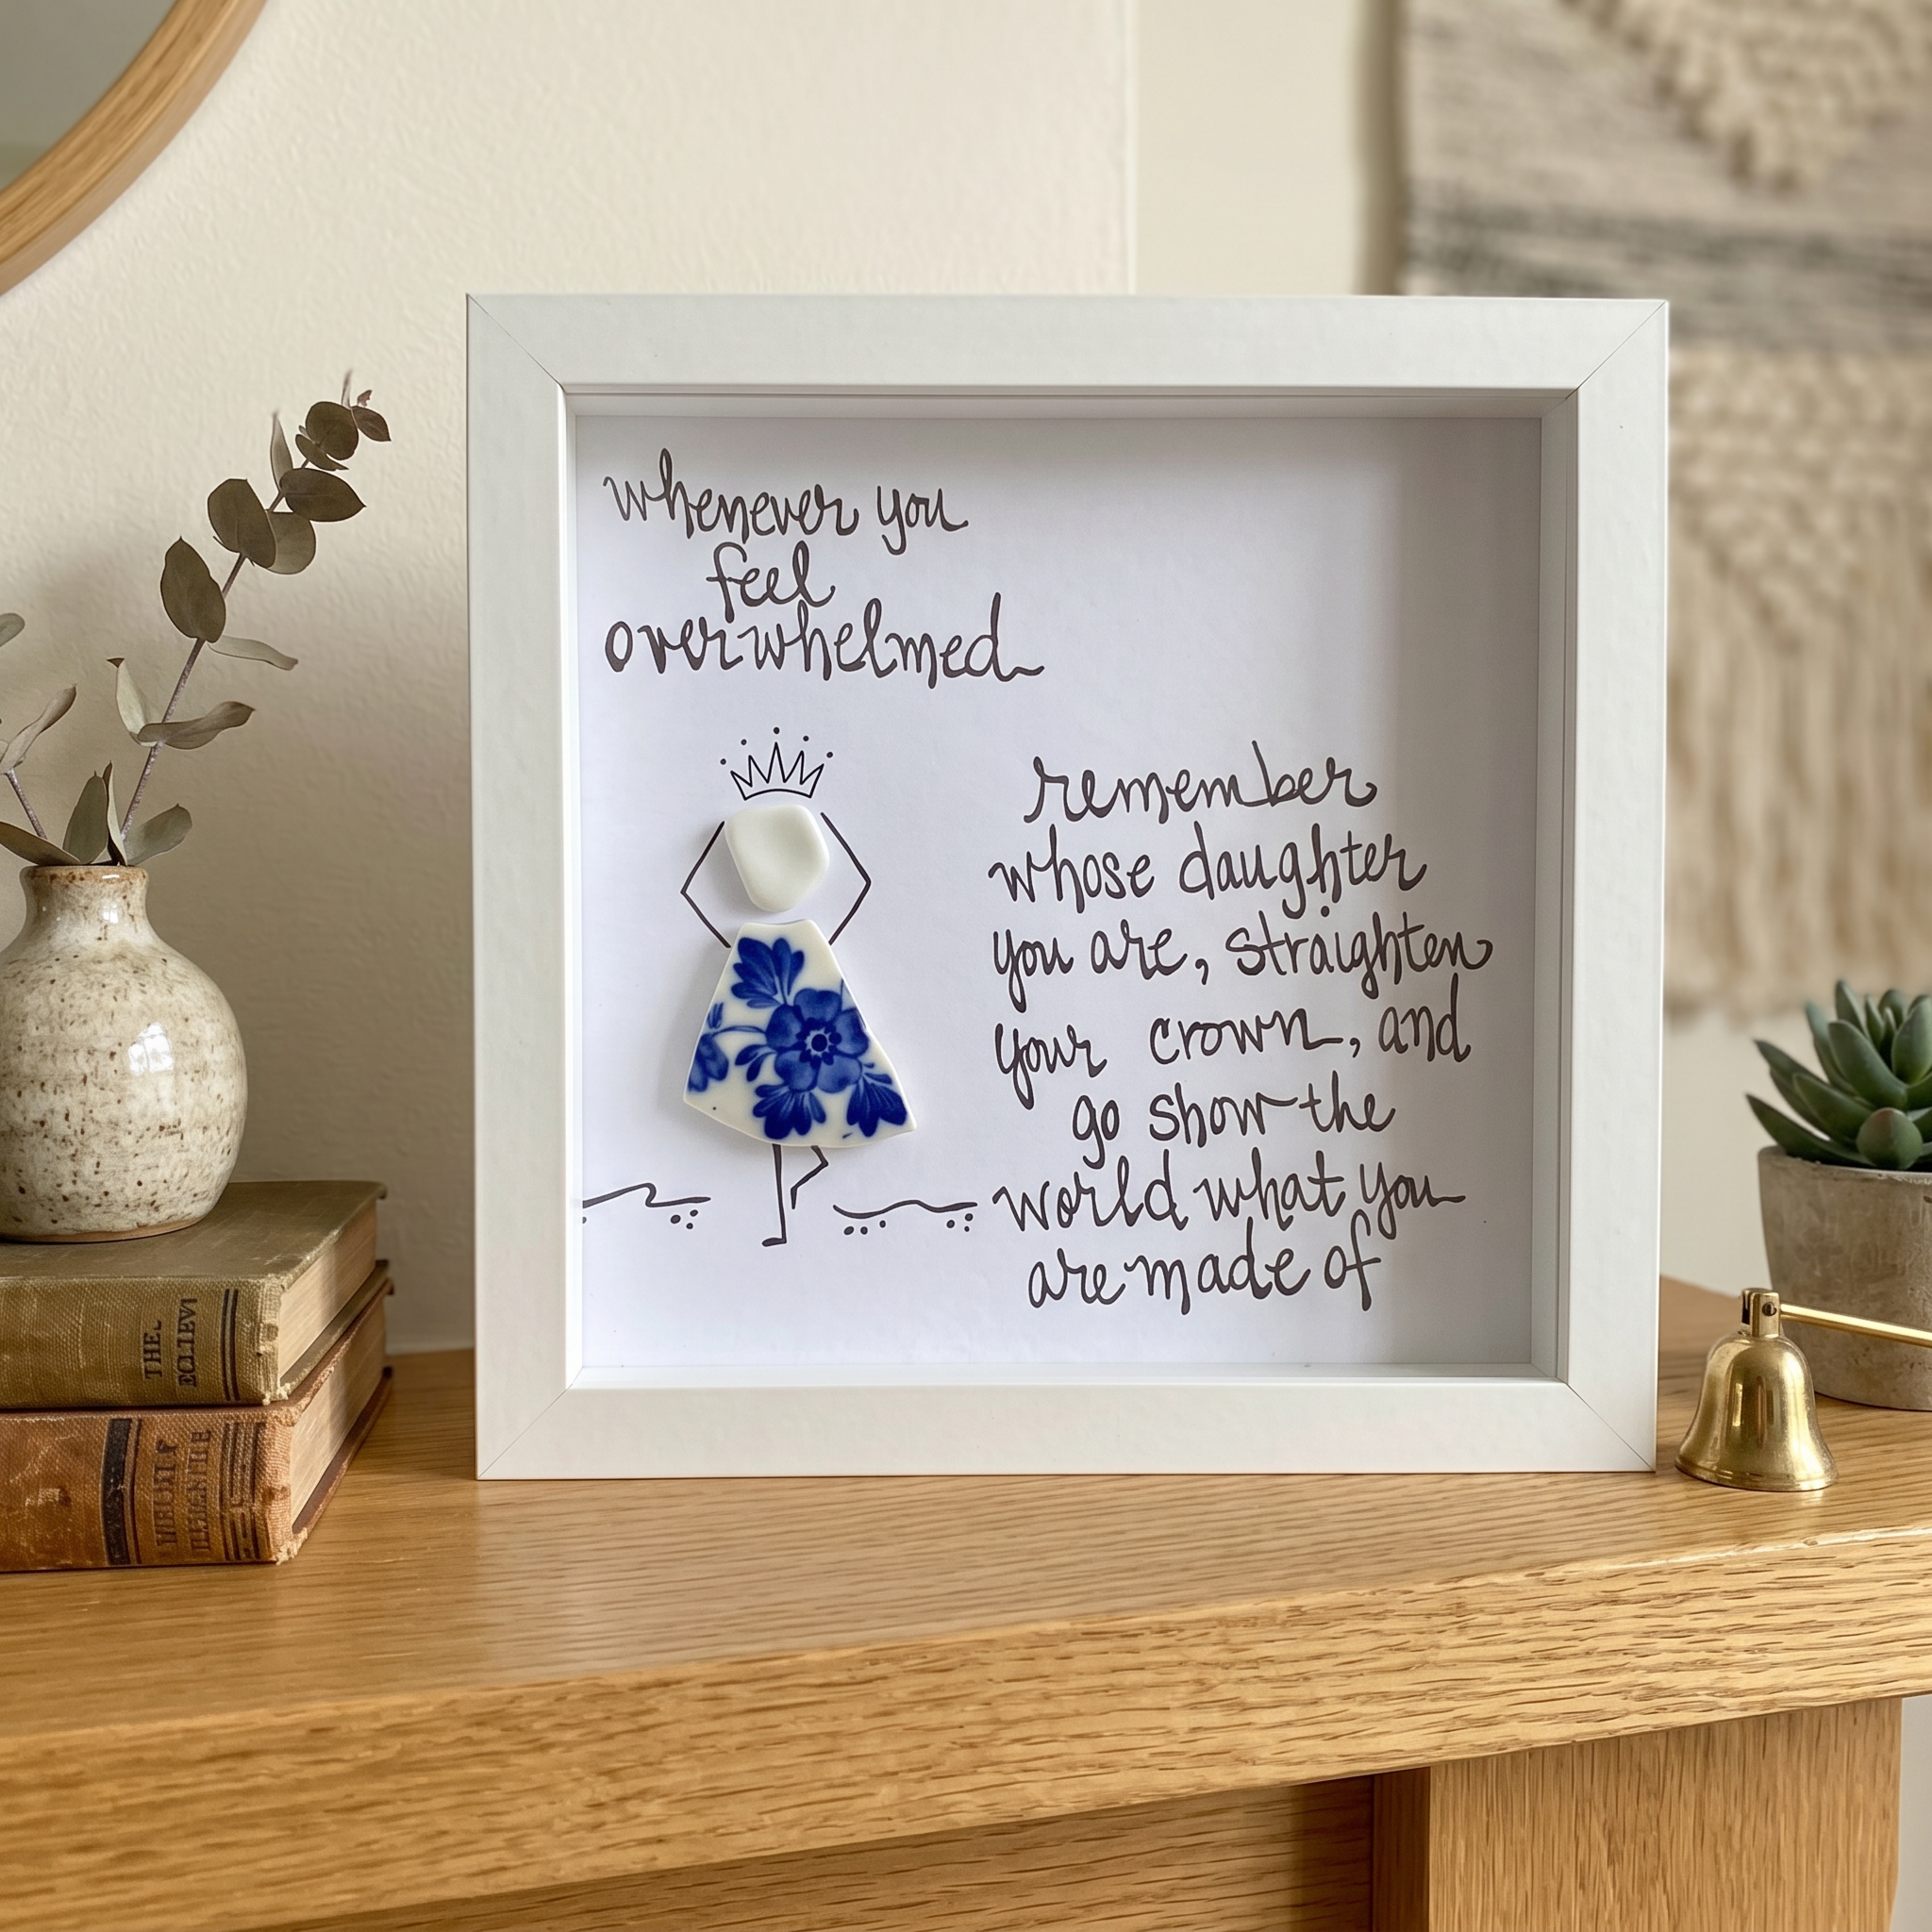 whenever you
feel
overwhelmed
remember
whose daughter
you are, straighten
your crown, and
go show the
world what you
are made of
THE